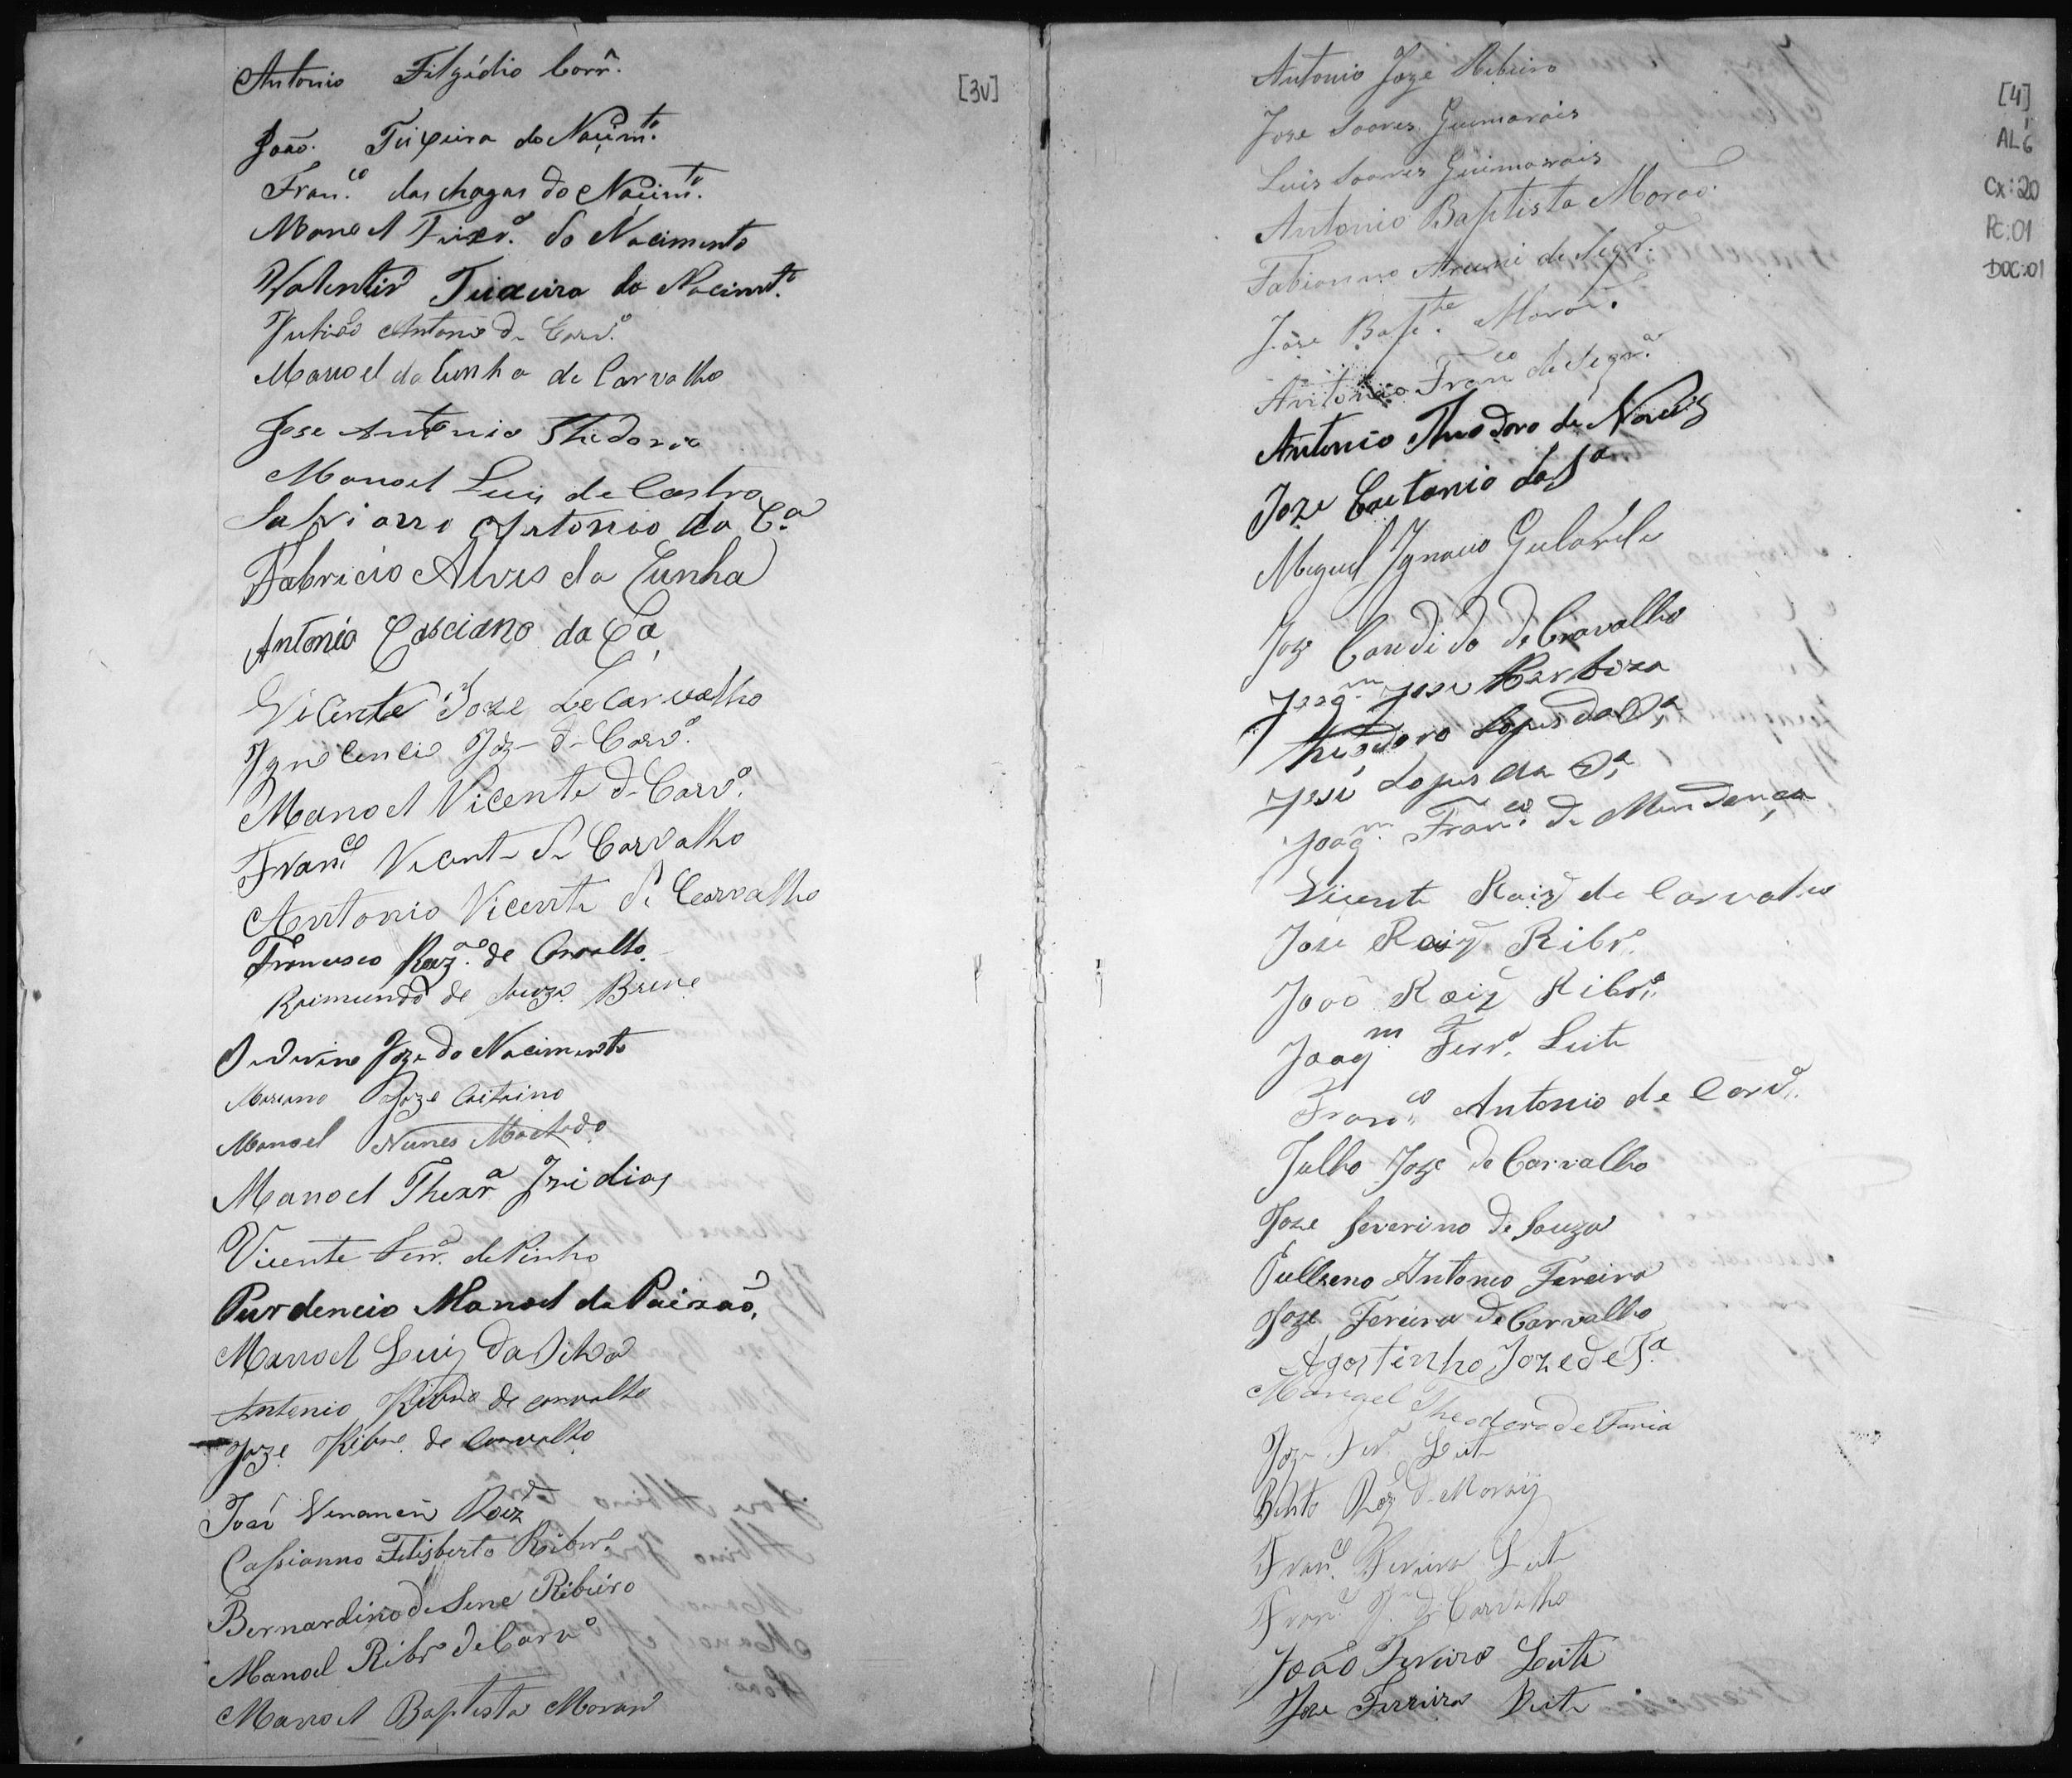 Antonio Filgídio Corr.ª
[3v]
João Teixeira do Nacim.to
Fran.co das chagas do Nacim.to
Manoel Teixr.ª do Nacimento
Valentin Teixeira do Nacimt.º
Antonio de Carv.º
Manoel da Cunha de Carvalho
Jose Antonio Thedoro
Manoel Luis de Castro
Salviano Antonio da C.ª
Fabricio Alves da Cunha
Antonio Casciano da Cª
Vicente Joze de Carvalho
Ignocencio Joze de Carv.º
Manoel Vicente de Carv.º
Fran.co Vicente de Carvalho
Antonio Vicente de Carvalho
Francisco Roz.º de Carvalho
Raimundo de Souza Breve
Joze do Nacimento
Mariano Joze Caitaino
Manoel Nunes Machado
Manoel Thexrª
Vicente Ferr.ª de Pinho
Purdencio Manoel da Paixão,
Manoel Luiz da Silva
Antonio Ribro de carvalho
Joze Ribro. de Carvalho
José Venancio Roiz
Cassianno Felisberto Ribr.º
Bernardino de Sene Ribeiro
Manoel Ribrº de Carvº
Manoel Baptista Morão
Antonio Joze Ribeiro
[4]
Jose Soares Guimarais
AL 6
Luis Soares Guimarais
Cx: 20
Antonio Baptista Morão
Pc: 01
Fabianno de Siqr.ª
DOC: 01
Jose Bapt.te Morão.
Antonio Fran.co de Seqr.ª
Antonio Theodoro de Novais
Joze Caetanio da Sª
Miguel Ignacio Gularte
Joze Candido de Cravalho
Joaq.m José Barboza
Theodoro Lopes da S.ª
José Lopes da S.ª
Joaq.m Fran.co de Mendança
Vicente Roiz de Carvalho
José Roiz Ribr.º
João Roiz Ribr.º
Joaq.m Ferr.ª Leite
Fran.co Antonio de Carv.º
Julho Joze de Carvalho
Joze Severino de Souza
Antonio Fereira
Joze Fereira de Carvalho
Agostinho Joze de S.ª
Manoel Theodoro de Faria
Joze Fer.ª Leite
Bento Roz de Morais
Fran.co Fereira Leite
Fran.co J.e de Carvalho
João Fereira Leite
Joze Ferreira Leite